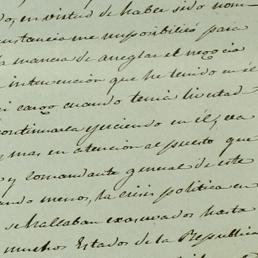 do, en virtud de haber sido nom-
cunstancia me imposibilitó para
la manera de arreglar el negocio
intervencion que he tenido en el
mi cargo cuando tenia libertad
continuarla ejerciendo en él; sea
y mas, en atencion al puesto que
y comandante general de este
cuando menos, la crisis politica en
se hallaban exacervados hasta
muchos Estados de la Republica